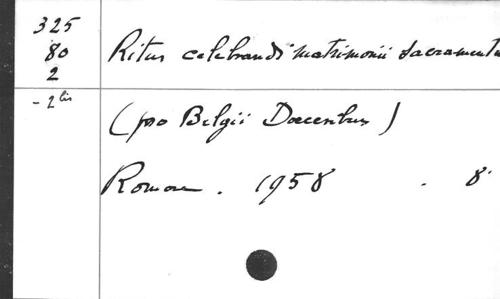 325
80
2
Ritus celebrandi matrimonii sacramentu
- 2 bis
(pro Belgii Dœcesibus)
Romae . 1958 . 8°